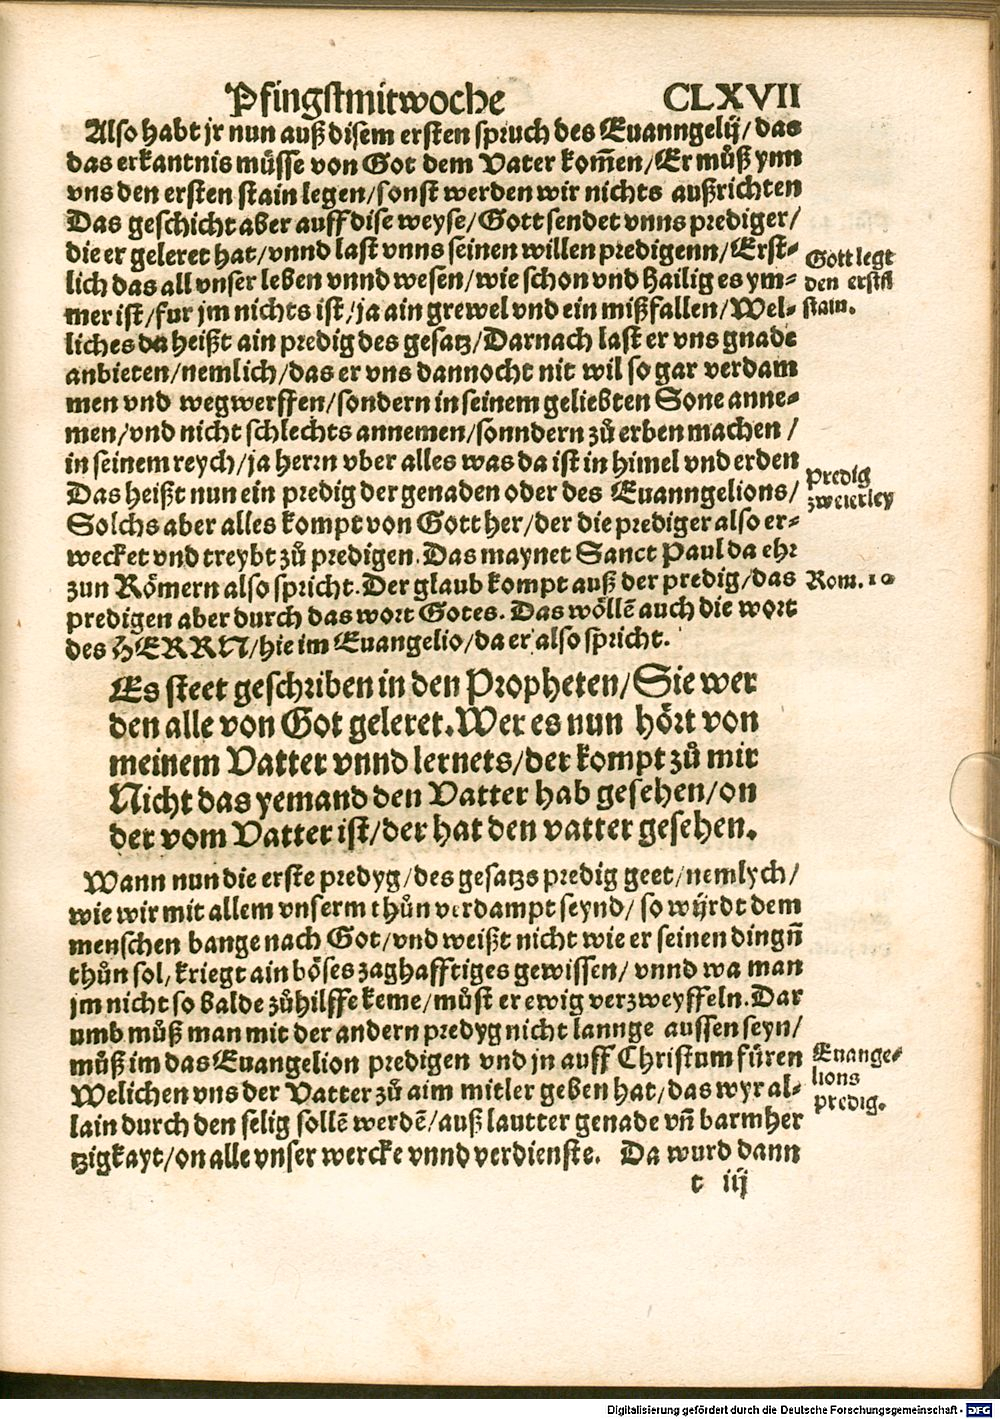 Pfingstmitwoche CLXVII
Also habt jr nun auß disem ersten spruch des Euanngelij/ das
das erkantnis müsse von Got dem Vater kom̄en/ Er můß ynn
vns den ersten stain legen/ sonst werden wir nichts außrichten
Das geschicht aber auff dise weyse/ Gott sendet vnns prediger/
die er geleret hat/ vnnd last vnns seinen willen predigenn/ Erst-
lich das all vnser leben vnnd wesen/ wie schon vnd hailig es ym-
mer ist/ fur jm nichts ist/ ja ain grewel vnd ein mißfallen/ Wel-
liches da heißt ain predig des gesatz/ Darnach last er vns gnade
anbieten/ nemlich/ das er vns dannocht nit wil so gar verdam
men vnd wegwerffen/ sondern in seinem geliebten Sone anne-
men/ vnd nicht schlechts annemen/ sonndern zů erben machen /
in seinem reych/ ja herrn vber alles was da ist in himel vnd erden
Das heißt nun ein predig der genaden oder des Euanngelions/
Solchs aber alles kompt von Gott her/ der die prediger also er-
wecket vnd treybt zů predigen. Das maynet Sanct Paul da ehr
zun Römern also spricht. Der glaub kompt auß der predig/ das
predigen aber durch das wort Gotes. Das wöllē auch die wort
des HERRN/ hie im Euangelio/ da er also spricht.
Gott legt
den erstē
stain.
Predig
zweierley
Rom. 10
Es steet geschriben in den Propheten/ Sie wer
den alle von Got geleret. Wer es nun hört von
meinem Vatter vnnd lernets/ der kompt zů mir
Nicht das yemand den Vatter hab gesehen/ on
der vom Vatter ist/ der hat den vatter gesehen.
Wann nun die erste predyg/ des gesatzs predig geet/ nemlych/
wie wir mit allem vnserm thůn verdampt seynd/ so wÿrdt dem
menschen bange nach Got/ vnd weißt nicht wie er seinen dingn̄
thůn sol, kriegt ain böses zaghafftiges gewissen/ vnnd wa man
jm nicht so balde zůhilffe keme/ můst er ewig verzweyffeln. Dar
umb můß man mit der andern predyg nicht lannge aussen seyn/
můß im das Euangelion predigen vnd jn auff Christum füren
Welichen vns der Vatter zů aim mitler geben hat/ das wyr al-
lain durch den selig sollē werdē/ auß lautter genade vn̄ barmher
tzigkayt/ on alle vnser wercke vnnd verdienste. Da wurd dann
Euange-
lions
predig.
t iij
Digitalisierung gefördert durch die Deutsche Forschungsgemeinschaft - DFG